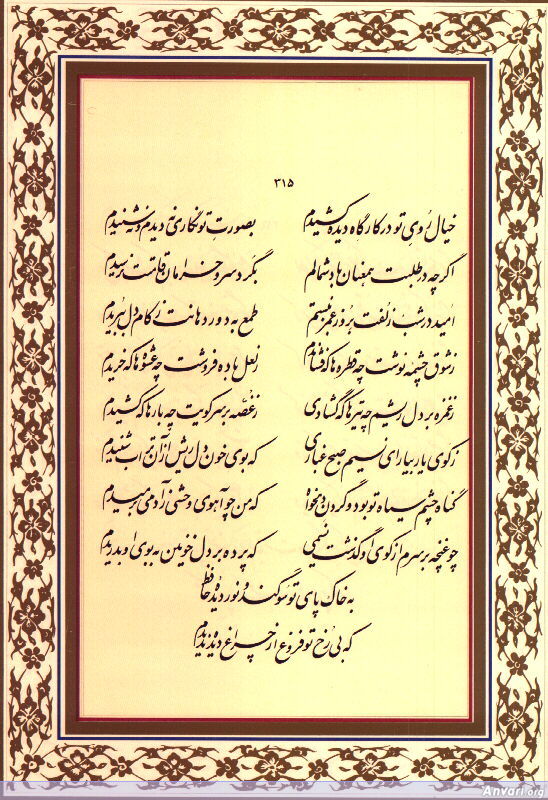 ۳۱۵
خیال روی تو در کارگاه دیده کشیدم بصورت تو نگاری نه دیدم و نه شنیدم
اگرچه در طلبت همعنان باد شمالم بگرد سرو خرامان قامتت نرسیدم
امید در شب زلفت بروز عمر نبستم طمع به دور دهانت ز کام دل ببریدم
ز شوق چشمه نوشت چه قطره‌ها که فشاندم ز لعل باده فروشت چه عشوه‌ها که خریدم
ز غمزه بر دل ریشم چه تیرها که گشادی ز غصه بر سر کویت چه بارها که کشیدم
ز کوی یار بیار ای نسیم صبح غباری که بوی خون دل ریش از آن تراب شنیدم
گناه چشم سیاه تو بود و گردن دلخواه که من چو آهوی وحشی ز آدمی برمیدم
چو غنچه بر سرم از کوی او گذشت نسیمی که پرده بر دل خونین به بوی او بدریدم
به خاک پای تو سوگند و نور دیده حافظ
که بی رخ تو فروغ از چراغ دیده ندیدم
Anvari.org